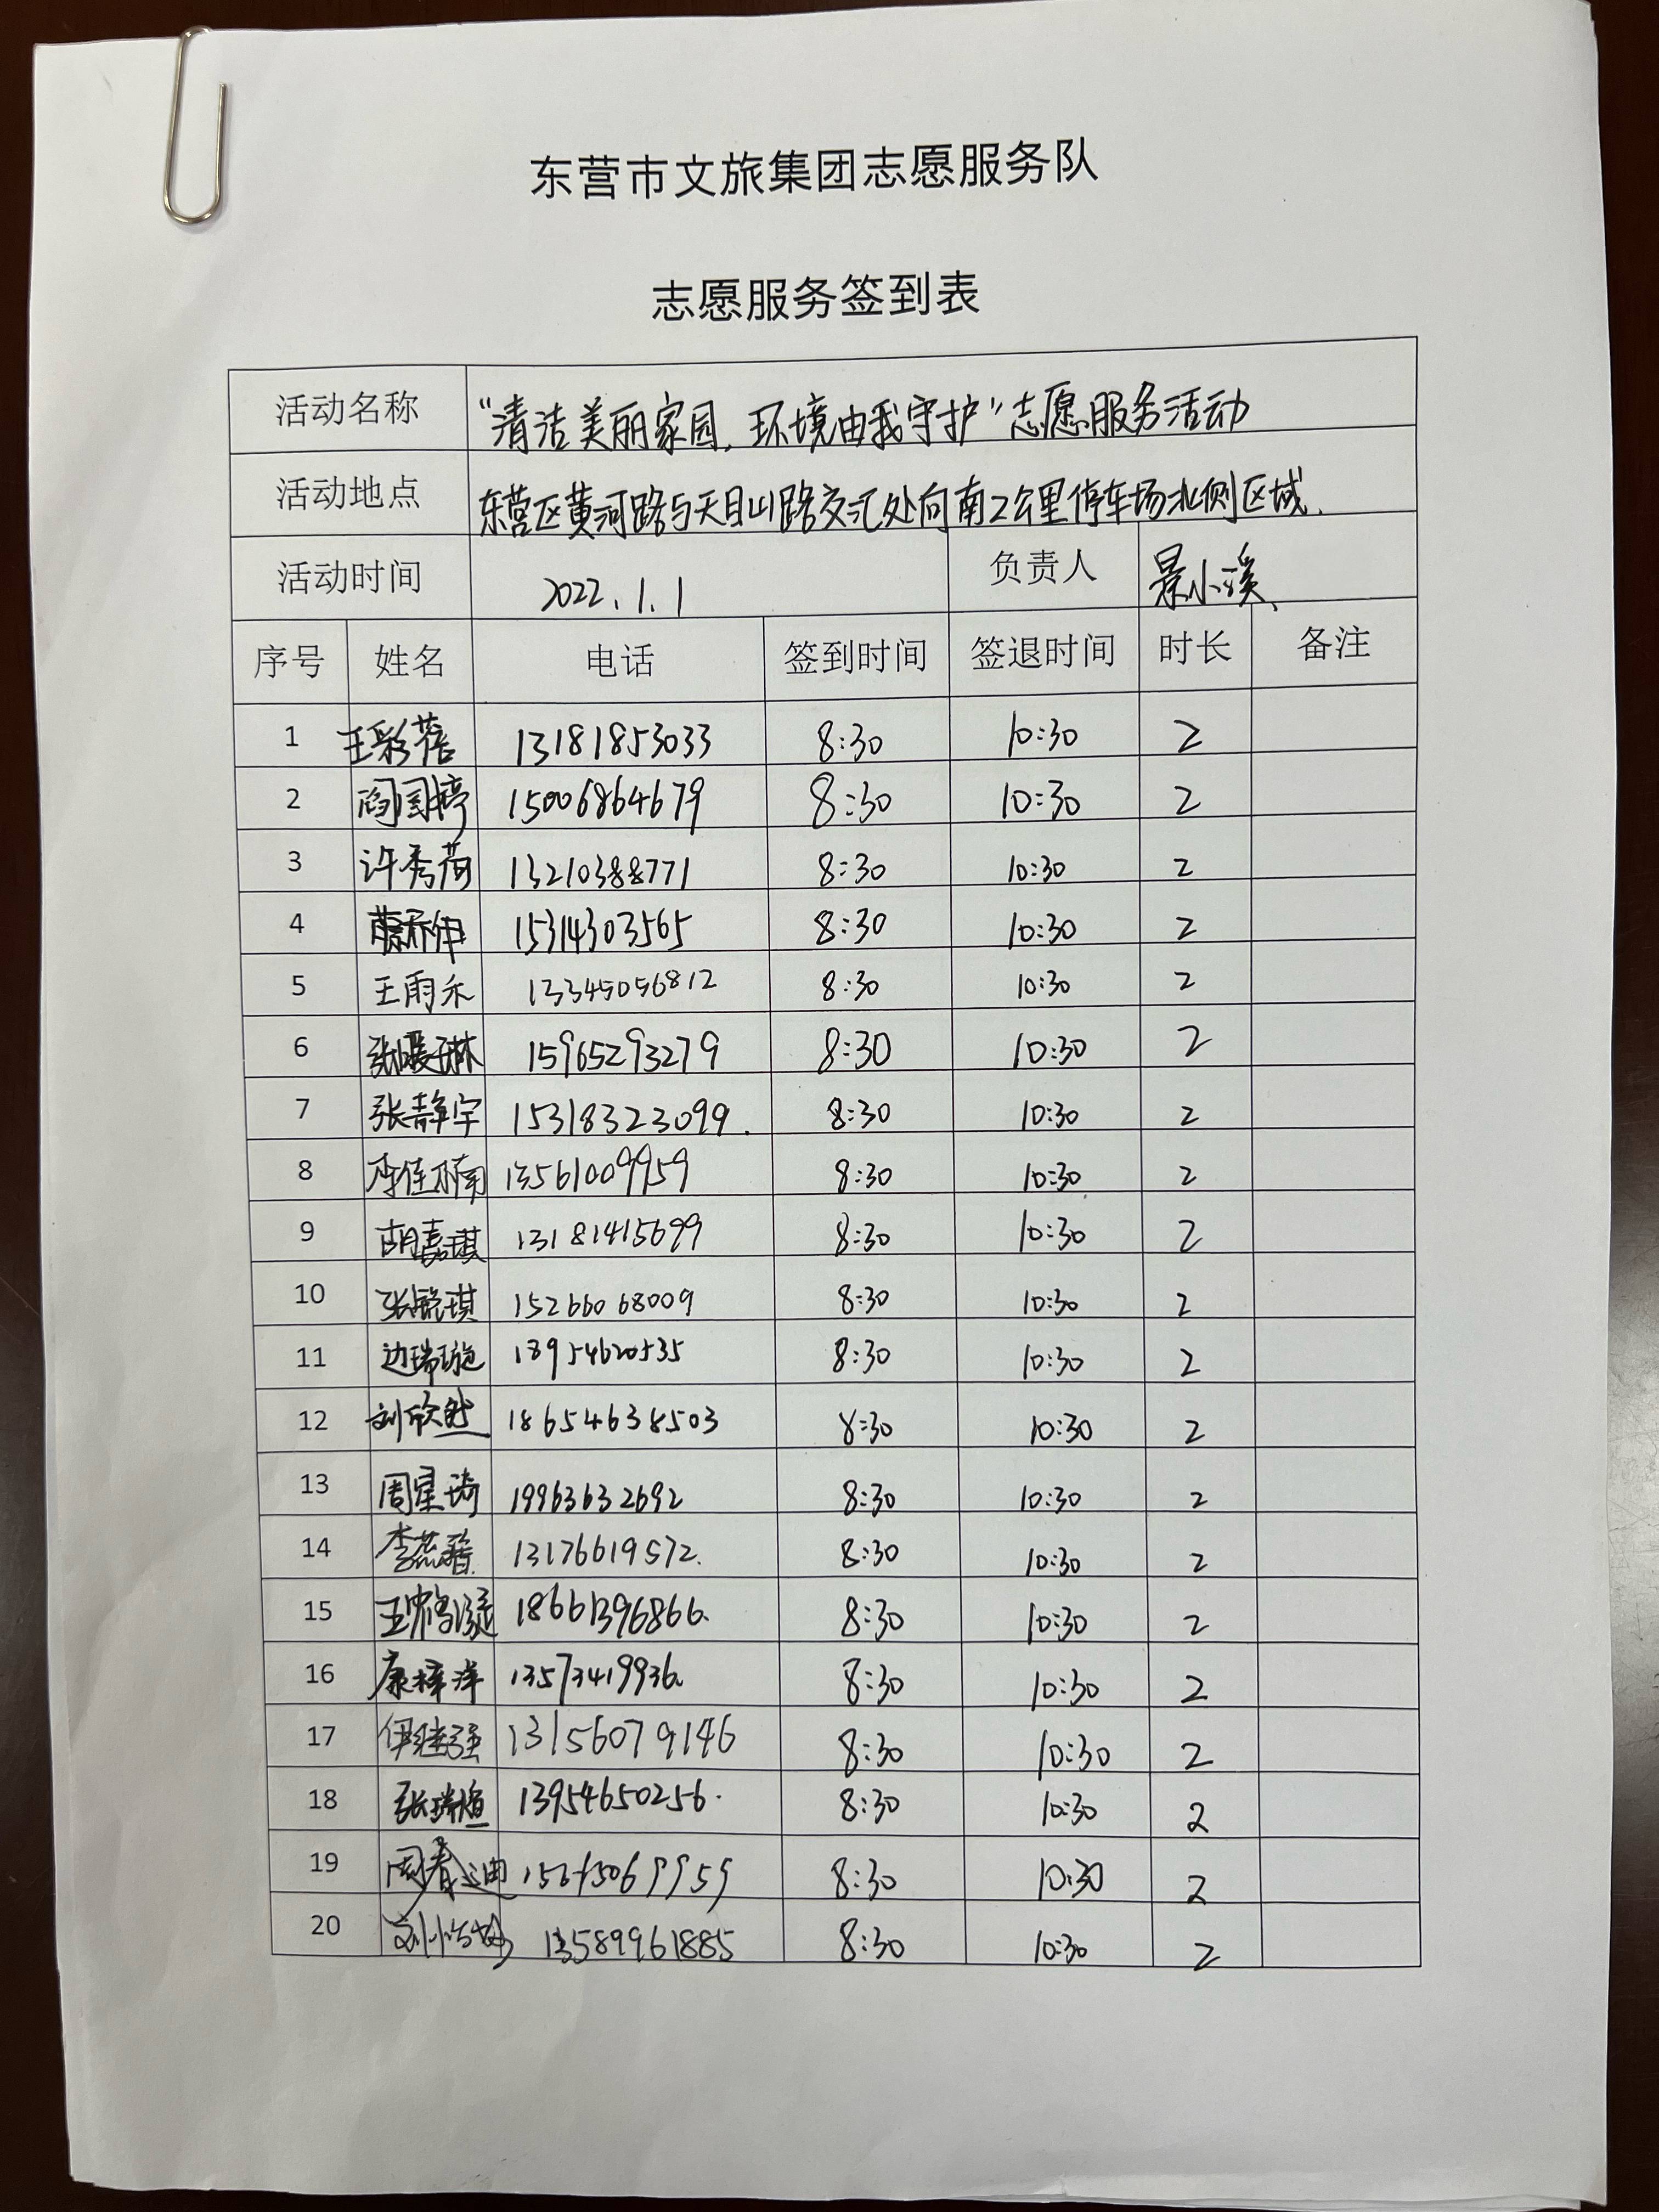 东营市文旅集团志愿服务队
志愿服务签到表
活动名称 “清洁美丽家园，环境由我守护”志愿服务活动
活动地点 东营区黄河路与天目山路交汇处向南2公里停车场北侧区域.
活动时间 2022.1.1 负责人 景小溪
序号 姓名 电话 签到时间 签退时间 时长 备注
1 王彩蓓 13181853033 8:30 10:30 2
2 闫国婷 15006864679 8:30 10:30 2
3 许秀荷 13210388771 8:30 10:30 2
4 15314303565 8:30 10:30 2
5 王雨禾 13345056812 8:30 10:30 2
6 15965293279 8:30 10:30 2
7 张静宇 15318323099. 8:30 10:30 2
8 13561009959 8:30 10:30 2
9 胡嘉琪 13181415699 8:30 10:30 2
10 张毓琪 15266068009 8:30 10:30 2
11 边瑞璇 18954620535 8:30 10:30 2
12 刘欣然 18654638503 8:30 10:30 2
13 周星琦 19963632692 8:30 10:30 2
14 13176619572. 8:30 10:30 2
15 18661396866. 8:30 10:30 2
16 康梓洋 13573419936. 8:30 10:30 2
17 伊继强 13156079146 8:30 10:30 2
18 13954650256. 8:30 10:30 2
19 周春迪 8:30 10:30 2
20 13589961885 8:30 10:30 2